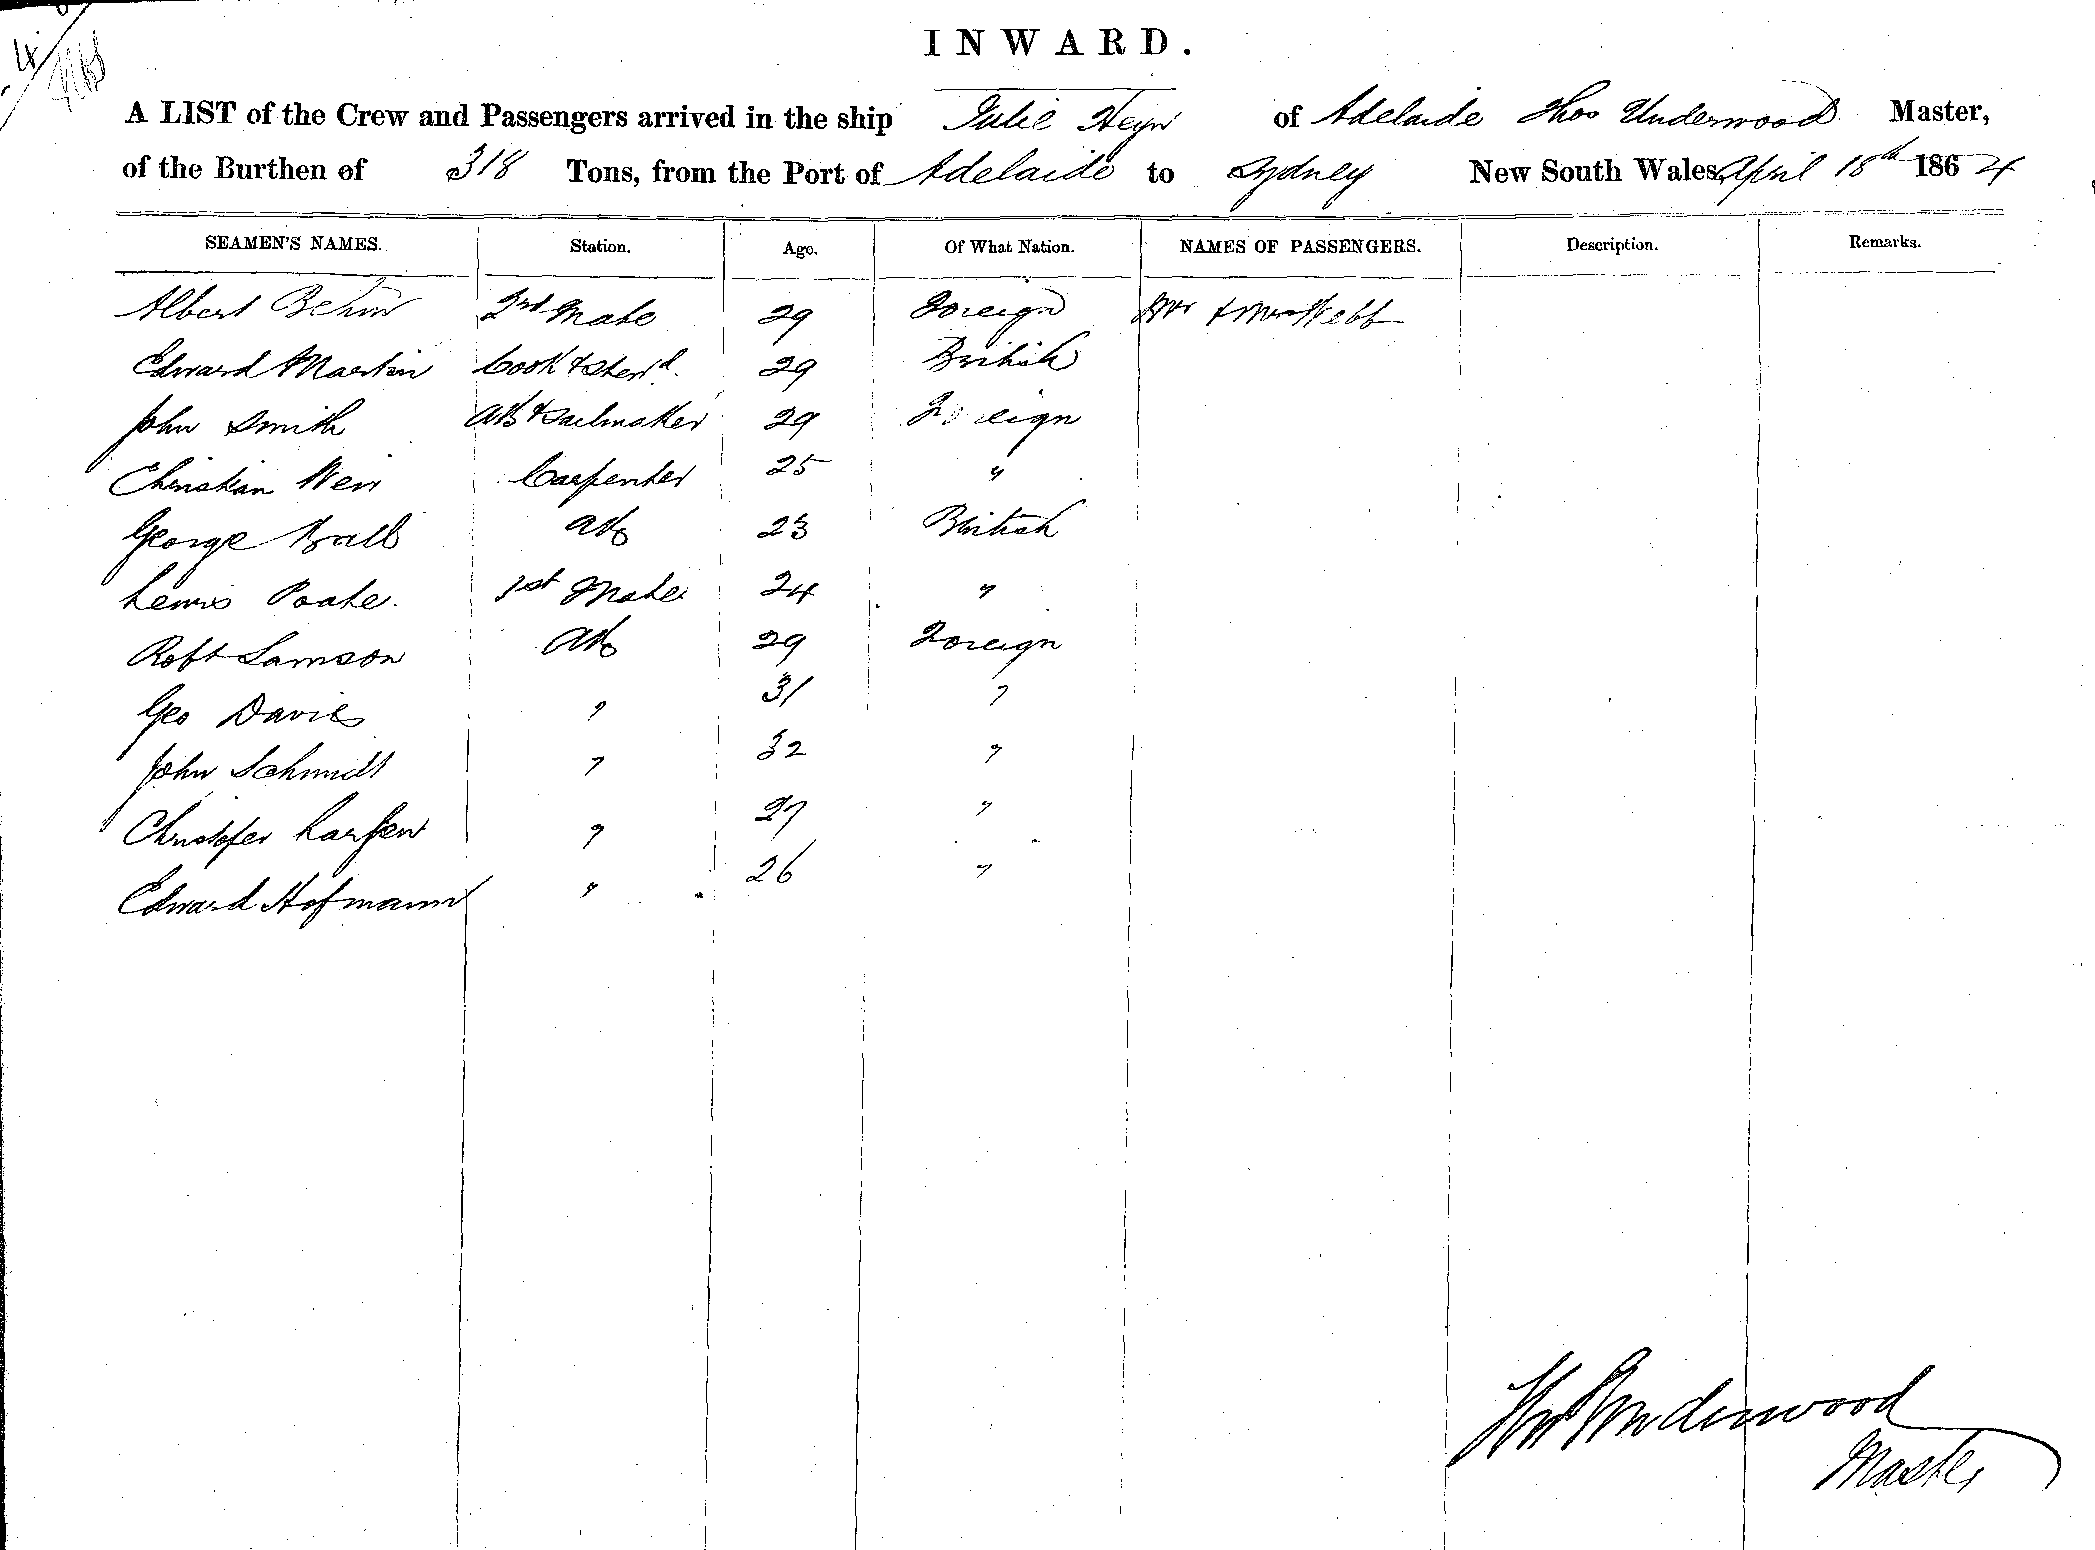 INWARD.
A LIST of the Crew and Passengers arrived in the ship Julie Heyn of Adelaide Thos Underwood Master,
of the Burthen of 318 Tons, from the Port of Adelaide to Sydney New South Wales, April 18th 1864
SEAMEN'S NAMES. Station. Age. Of What Nation. NAMES OF PASSENGERS. Description. Remarks.
Albert Behm 2nd Mate 29 Foreign Mr & Mrs Webb
Edward Martin Cook & Stewd. 29 British
John Smith AB & Sailmaker 29 Foreign
Christian Weir Carpenter 25 "
George Ball AB 23 British
Lewis Poate. 1st Mate 24 "
Robt Samson AB 29 Foreign
Geo Davis " 31 "
John Schmidt " 32 "
Christofer Larsen " 27 "
Edward Hofmann " 26 "
Thos Underwood
Master